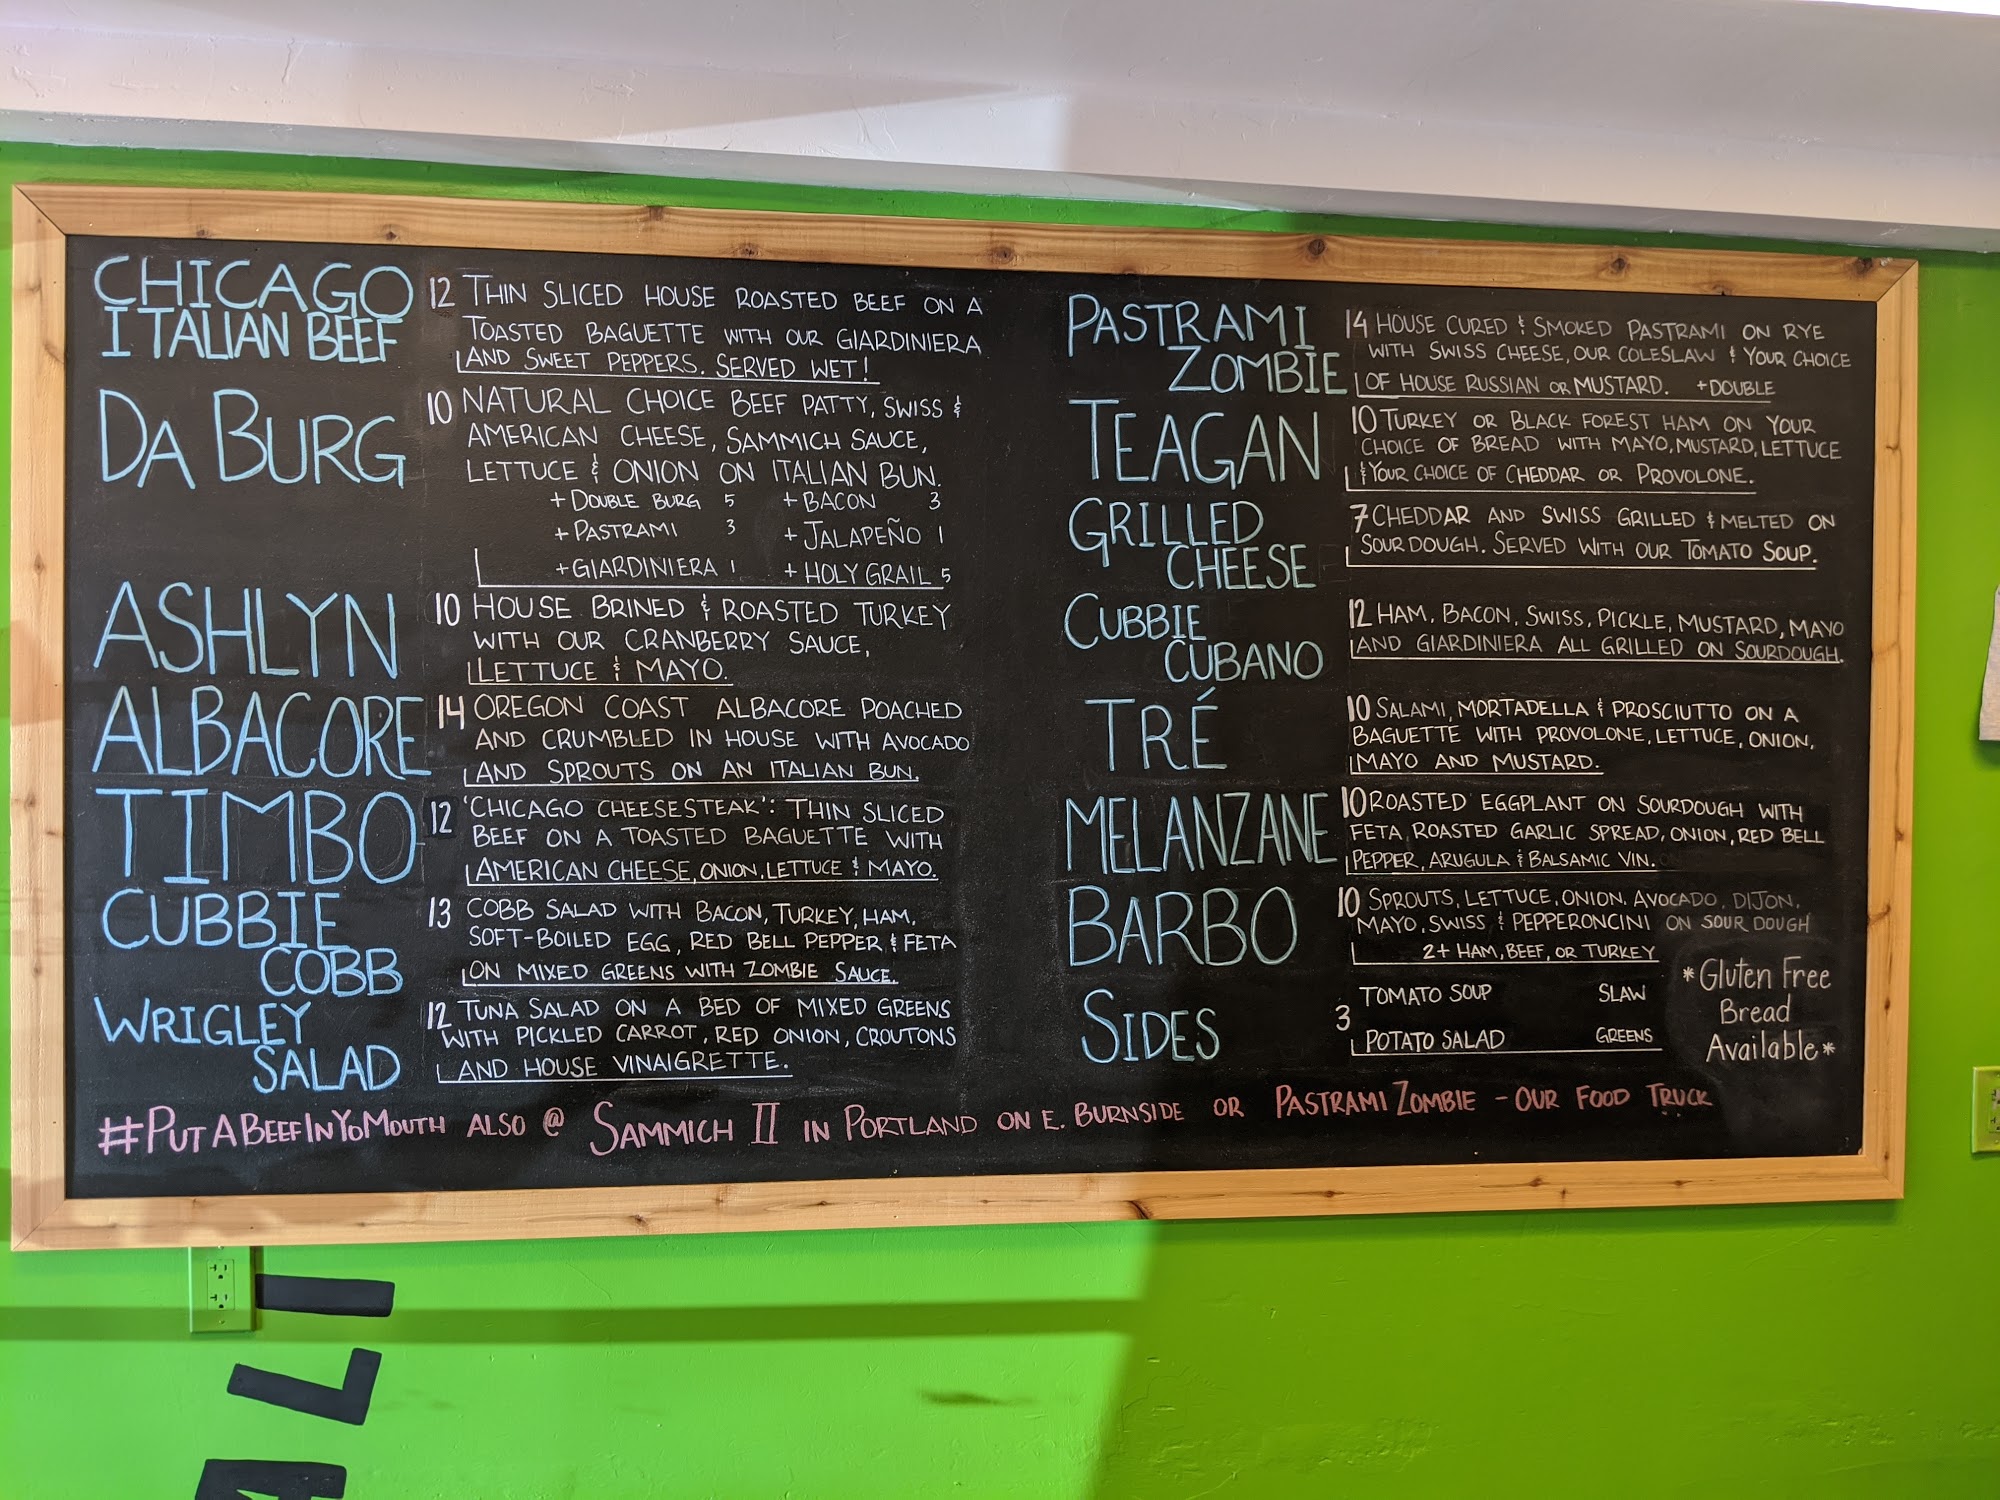 CHICAGO
ITALIAN BEEF
12 THIN SLICED HOUSE ROASTED BEEF ON A
TOASTED BAGUETTE WITH OUR GIARDINIERA
AND SWEET PEPPERS. SERVED WET!
DA BURG
10 NATURAL CHOICE BEEF PATTY, SWISS &
AMERICAN CHEESE, SAMMICH SAUCE,
LETTUCE & ONION ON ITALIAN BUN.
+ DOUBLE BURG 5 + BACON 3
+ PASTRAMI 3 + JALAPEÑO 1
+ GIARDINIERA 1 + HOLY GRAIL 5
ASHLYN
10 HOUSE BRINED & ROASTED TURKEY
WITH OUR CRANBERRY SAUCE,
LETTUCE & MAYO.
ALBACORE
14 OREGON COAST ALBACORE POACHED
AND CRUMBLED IN HOUSE WITH AVOCADO
AND SPROUTS ON AN ITALIAN BUN.
TIMBO
12 'CHICAGO CHEESESTEAK': THIN SLICED
BEEF ON A TOASTED BAGUETTE WITH
AMERICAN CHEESE, ONION, LETTUCE & MAYO.
CUBBIE
COBB
13 COBB SALAD WITH BACON, TURKEY, HAM,
SOFT-BOILED EGG, RED BELL PEPPER & FETA
ON MIXED GREENS WITH ZOMBIE SAUCE.
WRIGLEY
SALAD
12 TUNA SALAD ON A BED OF MIXED GREENS
WITH PICKLED CARROT, RED ONION, CROUTONS
AND HOUSE VINAIGRETTE.
PASTRAMI
ZOMBIE
14 HOUSE CURED & SMOKED PASTRAMI ON RYE
WITH SWISS CHEESE, OUR COLESLAW & YOUR CHOICE
OF HOUSE RUSSIAN OR MUSTARD. + DOUBLE
TEAGAN
10 TURKEY OR BLACK FOREST HAM ON YOUR
CHOICE OF BREAD WITH MAYO, MUSTARD, LETTUCE
& YOUR CHOICE OF CHEDDAR OR PROVOLONE.
GRILLED
CHEESE
7 CHEDDAR AND SWISS GRILLED & MELTED ON
SOUR DOUGH. SERVED WITH OUR TOMATO SOUP.
CUBBIE
CUBANO
12 HAM, BACON, SWISS, PICKLE, MUSTARD, MAYO
AND GIARDINIERA ALL GRILLED ON SOURDOUGH.
TRÉ
10 SALAMI, MORTADELLA & PROSCIUTTO ON A
BAGUETTE WITH PROVOLONE, LETTUCE, ONION,
MAYO AND MUSTARD.
MELANZANE
10 ROASTED EGGPLANT ON SOURDOUGH WITH
FETA, ROASTED GARLIC SPREAD, ONION, RED BELL
PEPPER, ARUGULA & BALSAMIC VIN.
BARBO
10 SPROUTS, LETTUCE, ONION, AVOCADO, DIJON,
MAYO, SWISS & PEPPERONCINI ON SOUR DOUGH
2+ HAM, BEEF, OR TURKEY
SIDES
3
TOMATO SOUP SLAW
POTATO SALAD GREENS
*Gluten Free
Bread
Available*
#PUTABEEFINYOMOUTH ALSO @ SAMMICH II IN PORTLAND ON E. BURNSIDE OR PASTRAMI ZOMBIE - OUR FOOD TRUCK
ALI